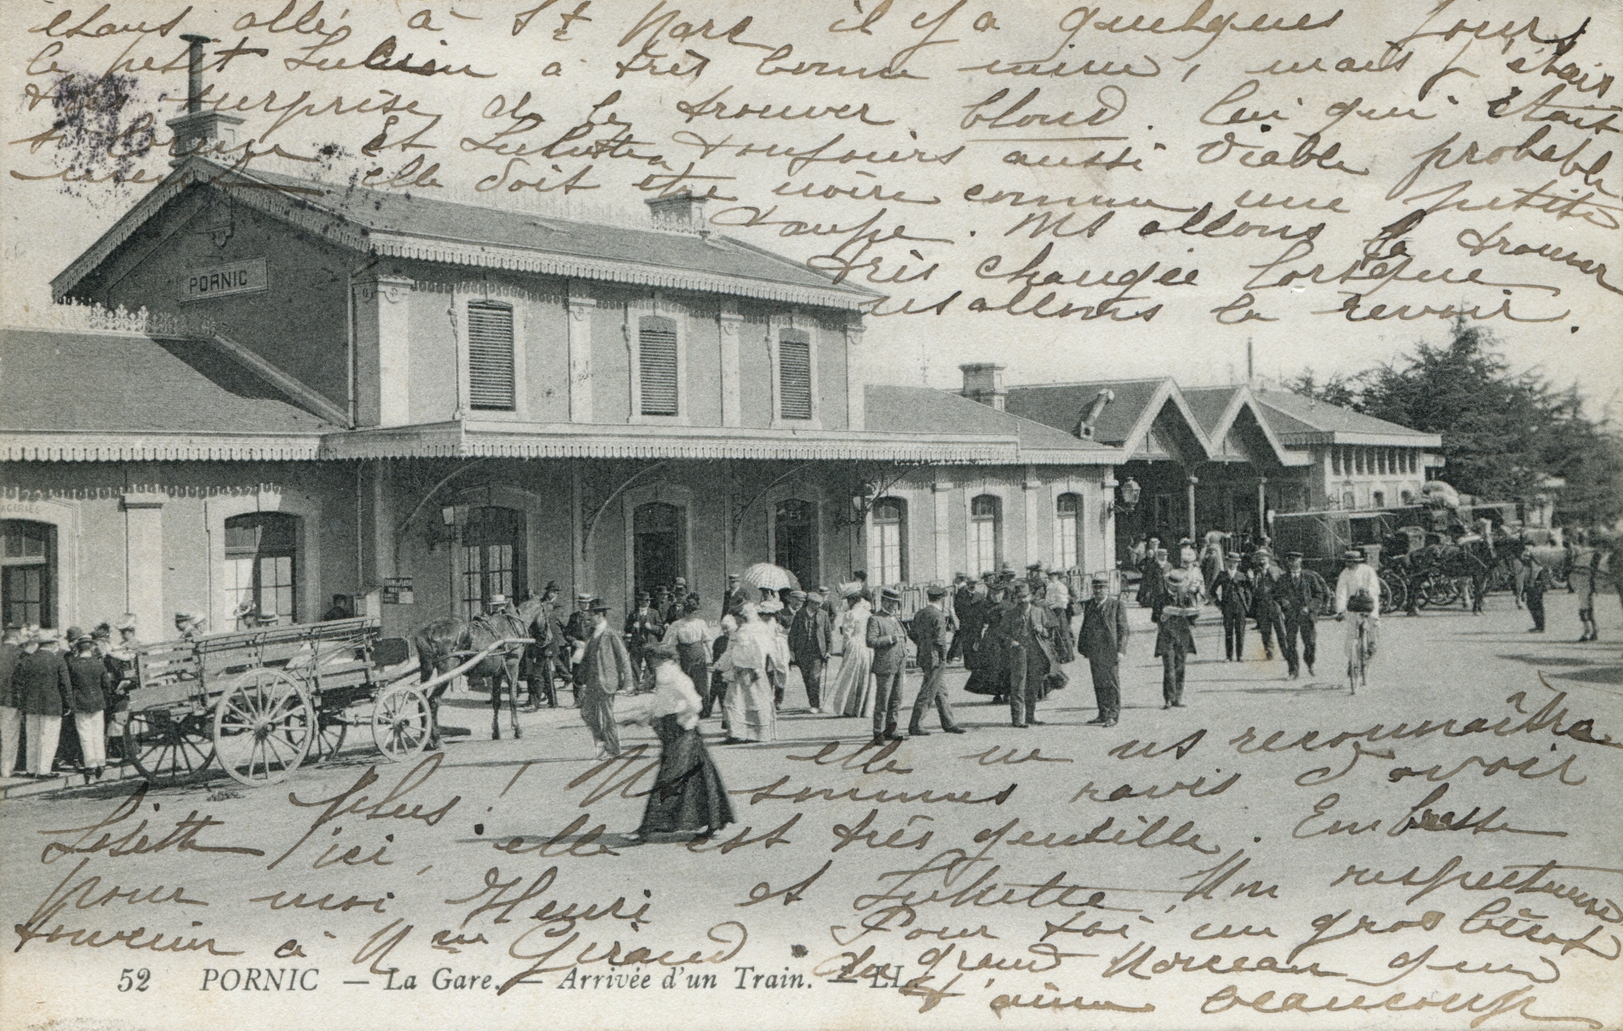 étant allé à St Marc il y a quelques jours,
le petit Lucien a très bonne mine, mais j'étais
très surprise de le trouver blond. lui qui était
si brun Et Lulutte toujours aussi diable probable
ment elle doit être noire comme une petite
taupe. Ns allons la trouver
très changée lorsque
ns allons la revoir.
PORNIC
elle ne ns reconnaîtra
plus! Ns sommes ravis d'avoir
Lisette ici, elle est très gentille. Embrasse
pour moi Henri et Lulutte, Un respectueux
souvenir à Mme Giraud. Pour toi, un gros bécot
du grand Morceau qui
t'aime beaucoup
52 PORNIC — La Gare. — Arrivée d'un Train. — LL.